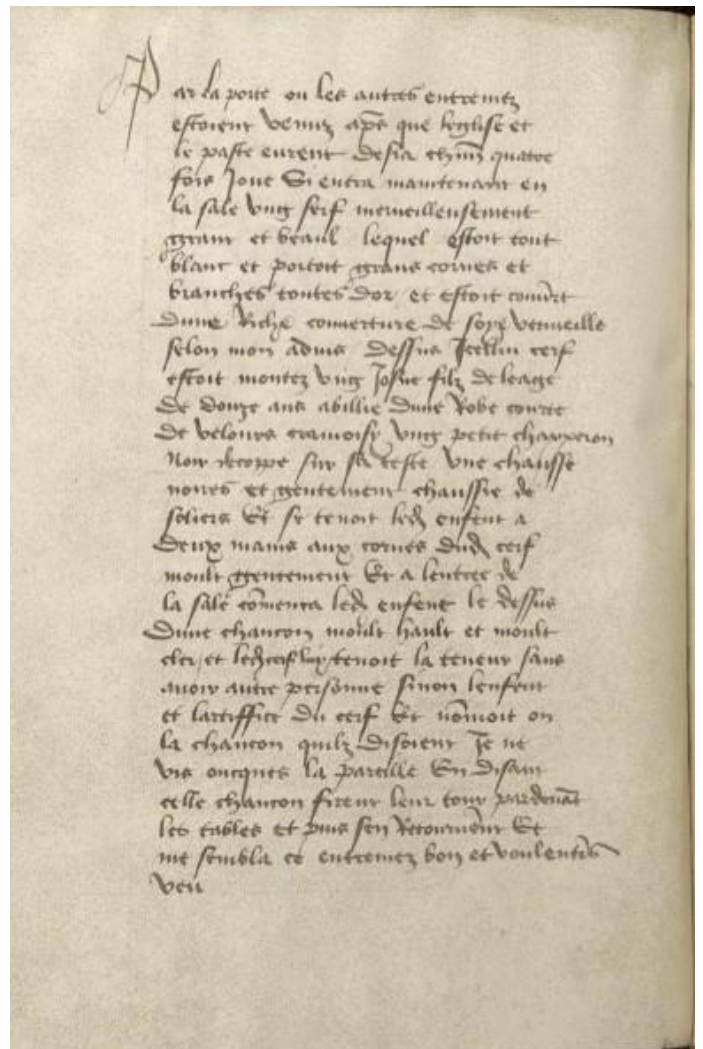 Par la porte ou les autres entremez
estoient venuz apẽs que leglise et
le paste eurent desia chũn quatre
fois Joue Si entra maintenant en
la sale vng serf merueilleusement
grant et beaul lequel estoit tout
blanc et portoit grans cornes et
branches toutes dor et estoit couu̾t
dune Riche couuerture de soye vermeille
selon mon aduis dessus Jcelluy cerf
estoit montez vng Josne filz de leage
de douze ans abillie dune Robe courte
de velours cramoisy vng petit chapperon
noir decoppe sur sa teste vne chausse
noires et gentement chaussie de
soliers Et se tenoit led̾ enfent a
deux mains aux cornes dud̾ cerf
moult gentement Et a lentree de
la sale cõmenca led̾ enfent le dessus
dune chancon moult hault et moult
cler et led̾ cerf luy tenoit la teneur sans
auoir autre personne sinon lenfent
et lartiffice du cerf Et nõmoit on
la chancon quilz disoient Je ne
vis oncques la pareille En disant
celle chancon firent leur tour pardeuãt
les tables et puis sen Retourne̾nt Et
me sembla ce entremez bon et voulentie̾s
veu